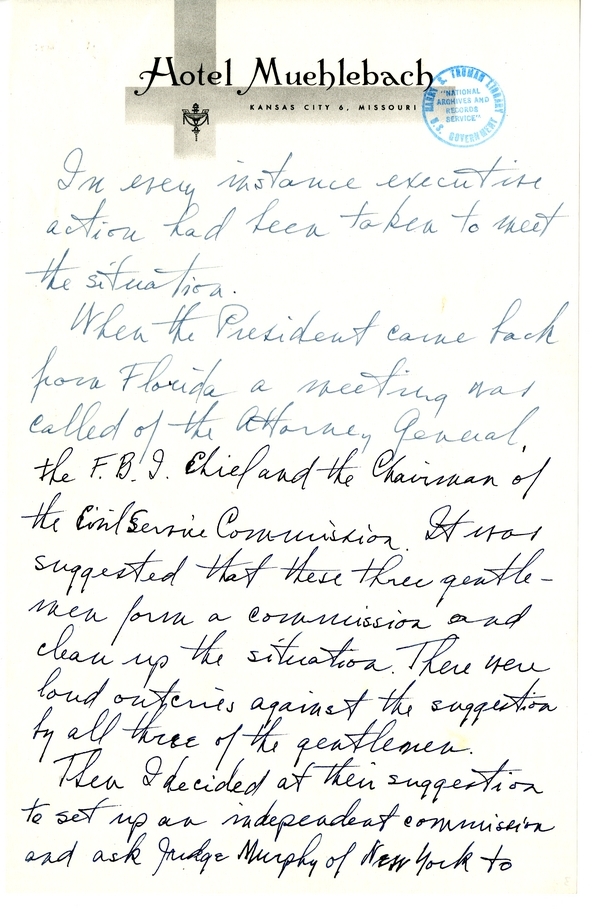 Hotel Muehlebach
KANSAS CITY 6, MISSOURI
HARRY S. TRUMAN LIBRARY
"NATIONAL
ARCHIVES AND
RECORDS
SERVICE"
U.S. GOVERNMENT
In every instance executive
action had been taken to meet
the situation.
When the President came back
from Florida a meeting was
called of the Attorney General,
the F.B.I. Chief and the Chairman of
the Civil Service Commission. It was
suggested that these three gentle-
men form a commission and
clean up the situation. There were
loud outcries against the suggestion
by all three of the gentlemen.
Then I decided at their suggestion
to set up an independent commission
and ask Judge Murphy of New York to